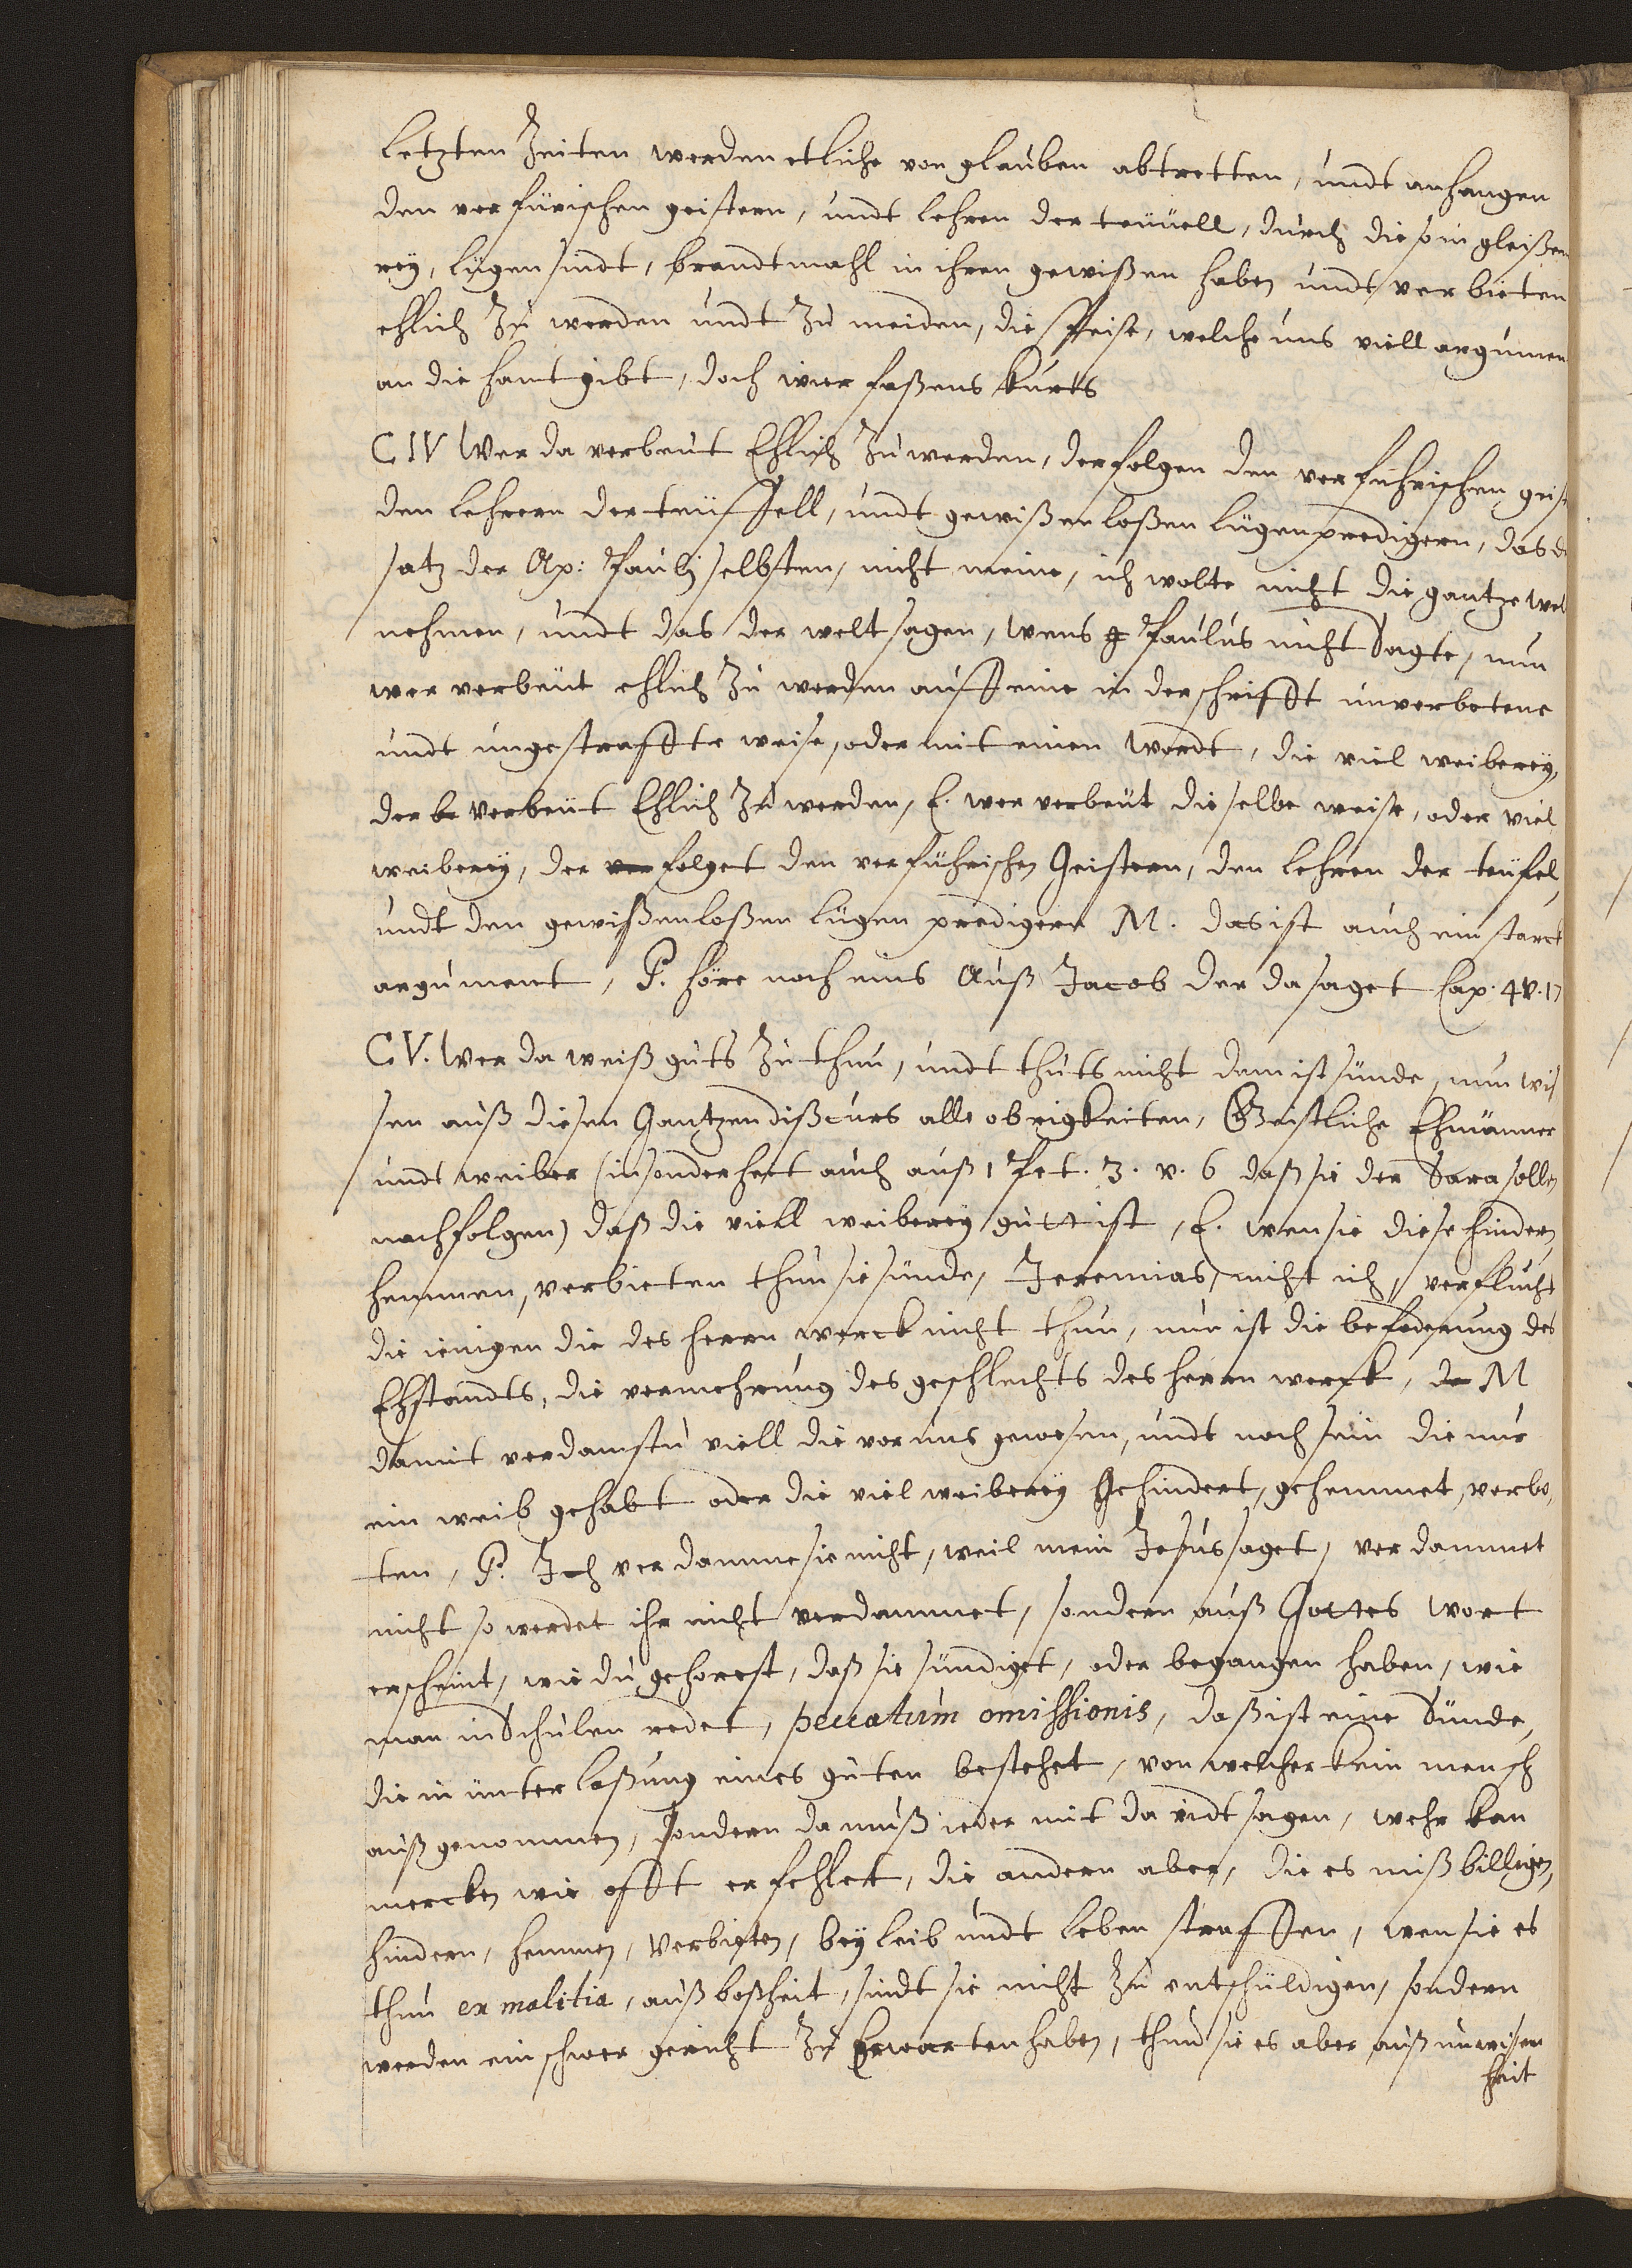 letzten Zeiten werden etliche von glauben abtretten, undt anhangen
den verfürischen geistern, undt lehren der teuüell, durch die so in gleißen
rey, lügen sindt, brandtmahl in ihren gewißen haben undt verbieten
ehlich Zu werden undt Zu meiden, die speise, welche uns viell argumen
an die hant gibt, doch wier faßens kurts
C IV Wer da verbeut Ehlich Zu werden, der folgen den verführischen geist
den lehrern der teüffell, undt gewißenloßen lügenpredigern, das de
satz der Ap: Pauly selbsten, nicht meine, ich wolte nicht die gantze wel
nehmen, undt das der welt sagen, wens Paulus nicht Sagte, nun
wer verbeüt ehlich Zu werden auff eine in der schrifft unverbotene
undt ungestraffte weise, oder mit einen wordt, die viel weiberey,
der verbeüt Ehlich Zu werden, E. wer verbeüt dieselbe weise, oder viel
weiberey, der folget den verführischen Geistern, den lehren der teüfel,
undt den gewißenloßen lügen predigern M. das ist auch ein starck
argument, P. höre noch eins Auß Jacob der da saget Cap. 4 v. 17
C V. Wer da weiß guts Zu thun, undt thuts nicht dem ist sünde, nun wis
sen auß diesen Gantzen dißcurs alle obrigkeiten, Geistliche Ehmänner
undt weiber (insonderheit auch auß 1 Pet. 3. v. 6 daß sie der Sara sollen
nachfolgen) daß die viell weiberey gutt ist, E. wen sie diese hindern,
hemmen, verbieten thun sie sünde, Jeremias, nicht ich, verflucht
die ienigen die des herrn werck nicht thun, nun ist die beföderung des
Ehstandts, die vermehrung des geschlechts des herrn werck, M
damit verdamstu viell die vor uns gewesen, undt noch sein die nur
ein weib gehabt oder die viel weiberey Gehindert, gehemmet, verbo,
ten, P. Ich verdamme sie nicht, weil mein Jesus saget, verdammet
nicht so werdet ihr nicht verdammet, sondern auß Gottes Wort
erscheint, wie du gehorest, daß sie sündiget, oder begangen haben, wie
man in Schulen redet, peccatum omissionis, daß ist eine Sünde,
die in unterlaßung eines guten bestehet, von welcher kein mensch
auß genommen, sondern da muß ieder mit davidt sagen, wehr kan
mercken wie offt er fehlet, die andern aber, die es mißbilligen,
hindern, hemmen, Verbieten, bey leib undt leben straffen, wen sie es
thun ex malitia, auß boßheit, sindt sie nicht Zu entschüldigen, sondern
werden ein schwer gericht Zu Erwarten haben, thun sie es aber auß unwisen
heit